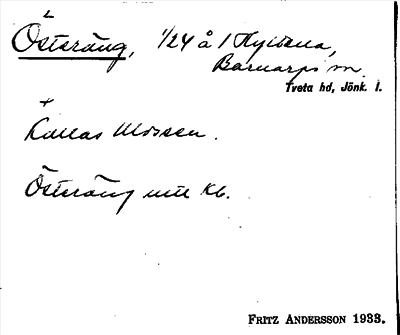 Östräng, 1/24 å 1 Hyltena,
Barnarps sn.
Tveta hd, Jönk. l.
Kallas Mossen.
Östräng utt kb.
FRITZ ANDERSSON 1933.